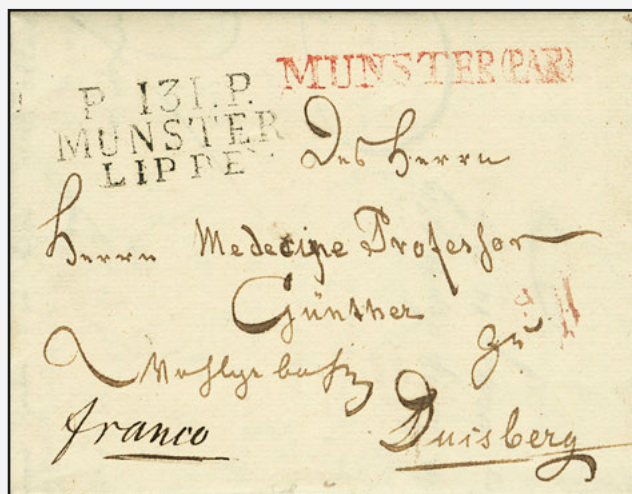 P. 131. P.
MUNSTER
LIPPE
MUNSTER (PAR)
Des Herrn
Herrn Medecine Professor
Günther
Wohlgebohr zu
franco Duisberg